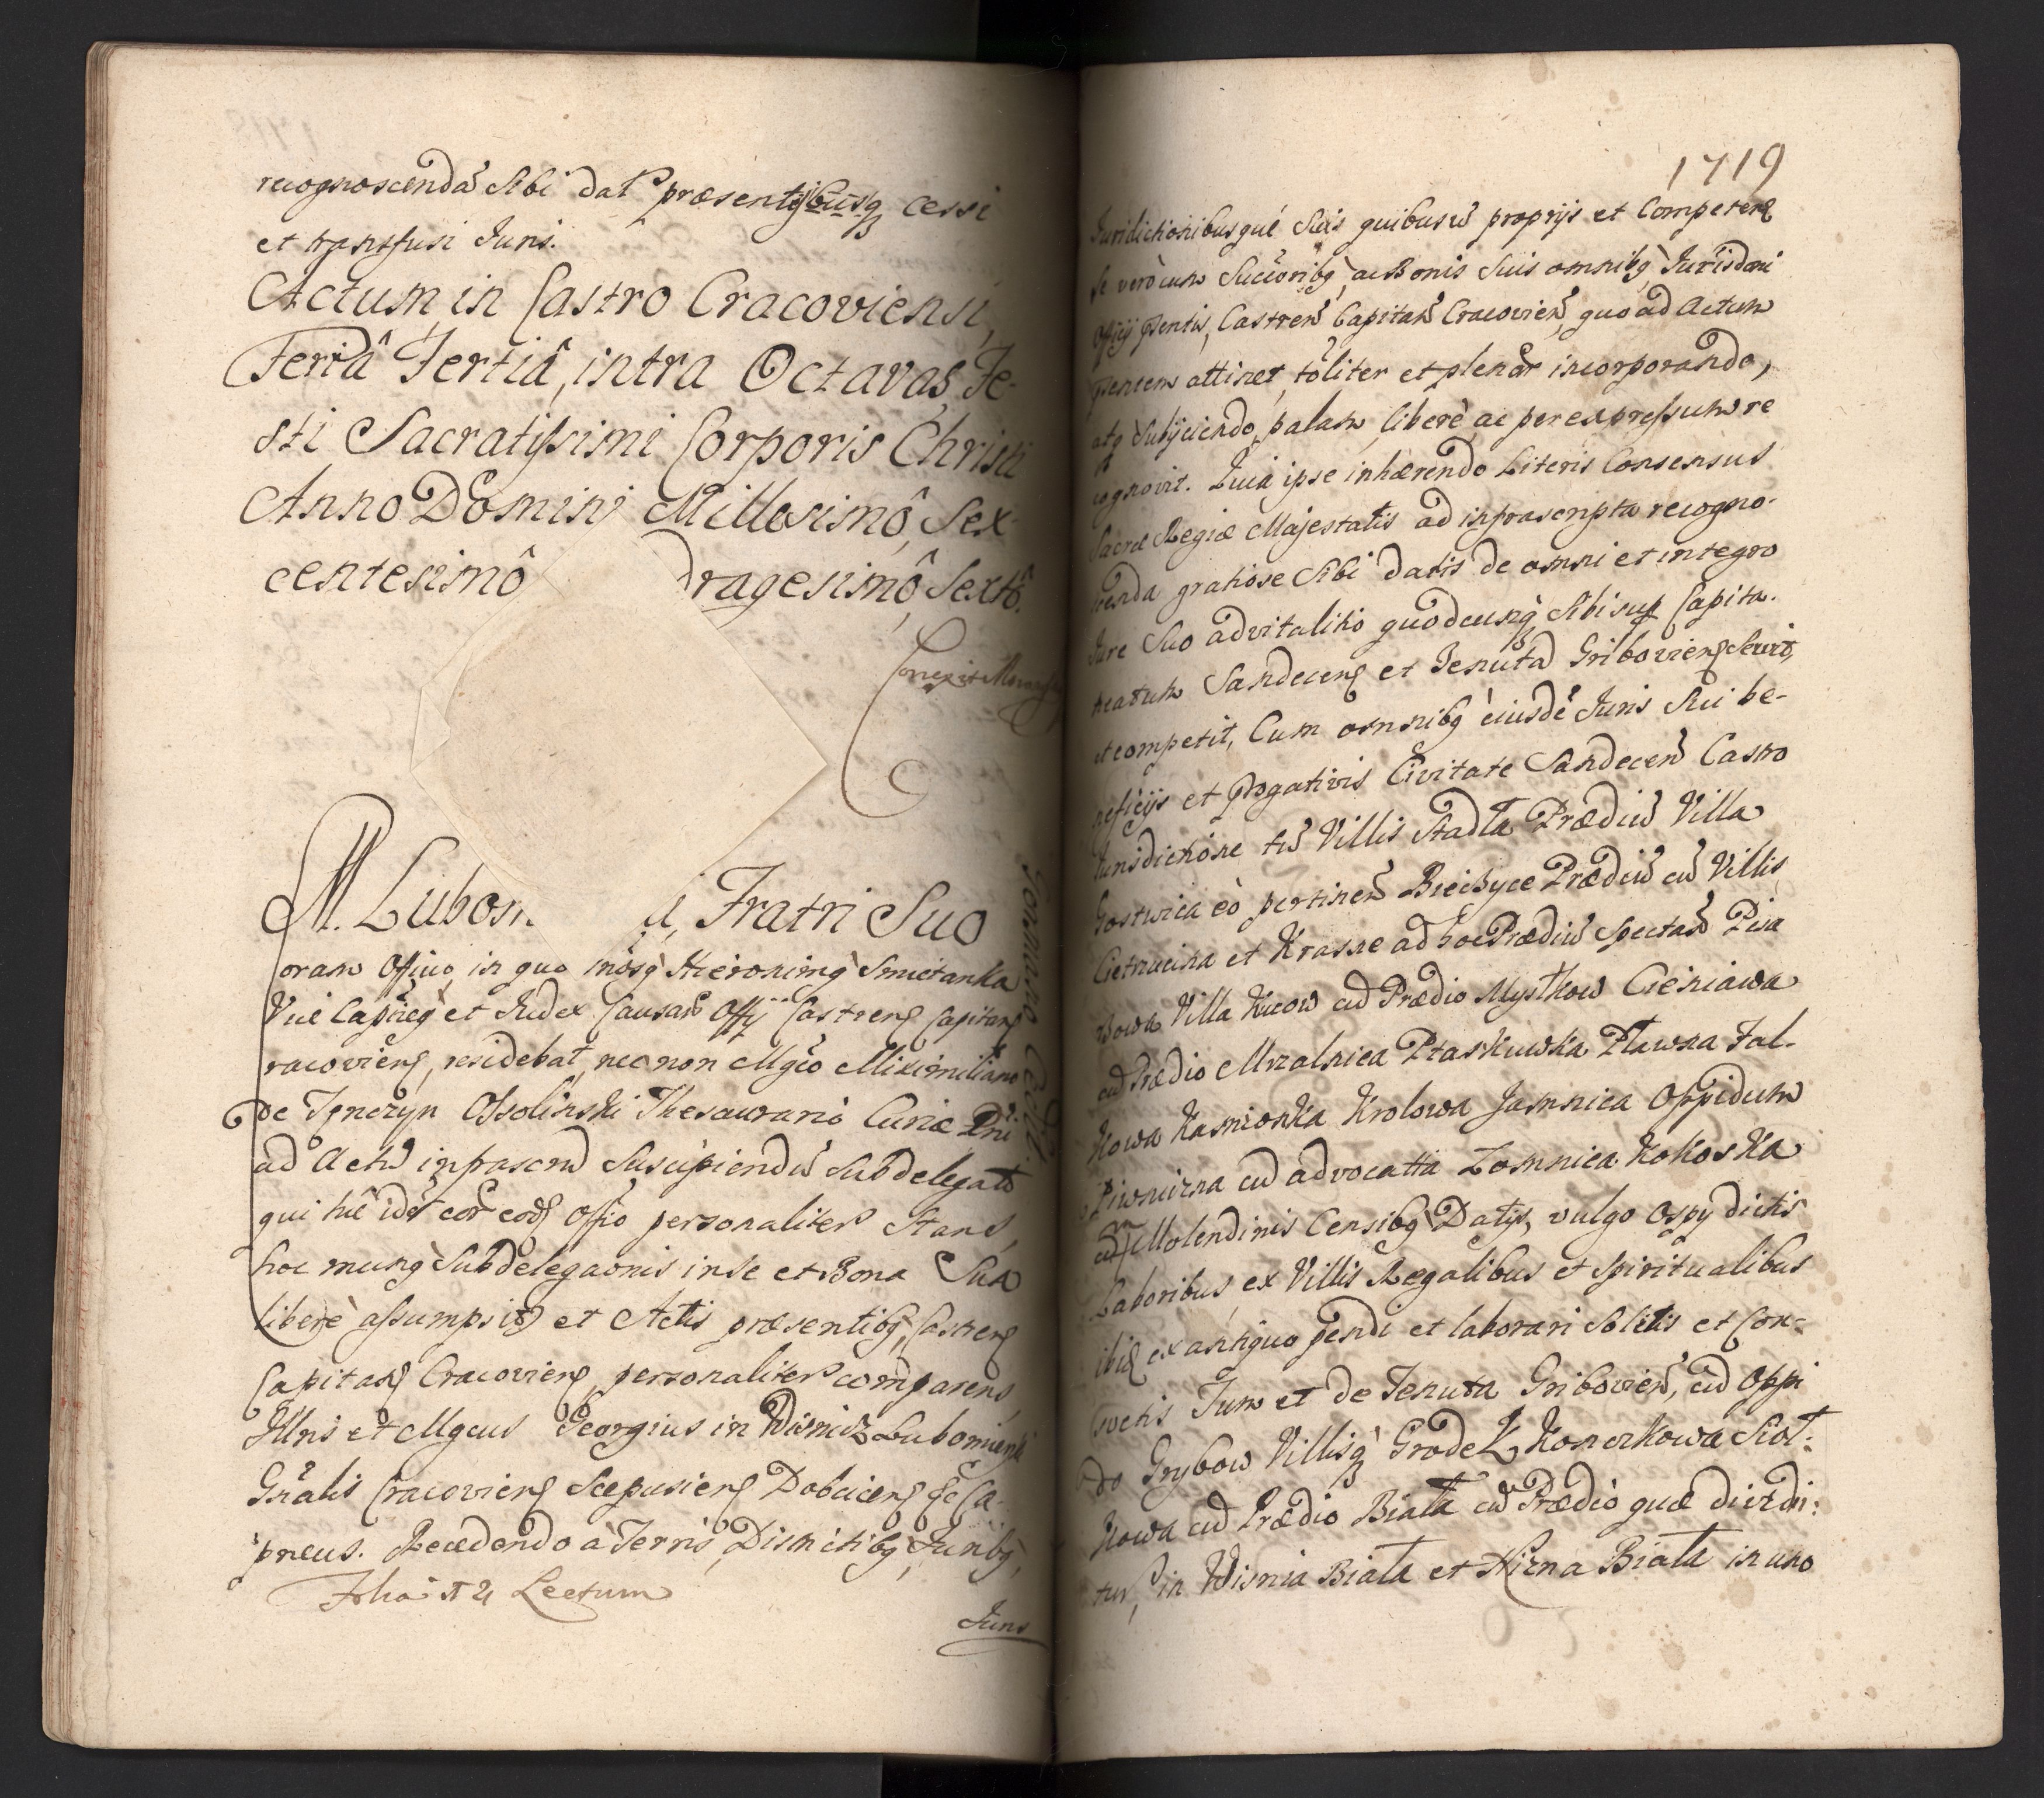 recognoscenda Sibi dat præsentibusq cessi
et transfusi Juris.
Actum in Castro Cracoviensi,
Feriâ Tertiâ, intra Octavas Fe-
sti Sacratissimi Corporis Christi
Anno Domini Millesimô, Sex-
centesimô dragesimô Sextô.
M. Lubom i, Fratri Suo
oram Officio, in quo mõsq Hieronimq Smietanka
Vice Capñeq et Judex Causaȓ Offij Castrenȿ Capitanȿ
racovienȿ, residebat, necnon Mgco Miximiliano
de Tęnczyn Ossolinski Thesaurario Curiæ Pni
ad Actũ infrascrũ Suscipiendũ Subdelegato
qui hic idẽ cor eodȿ Offio personaliter Stans,
hoc munq Subdelegaonis in se et Bona Sua
liberè assumpsit et Actis præsentibq, Castrenȿ
Capitanȿ Cracovienȿ, personaliter comparens,
Illris et Mgcus Georgius in Wisnicz Lubomirski
Gñalis Cracovienȿ Scepusienȿ Dobcicenȿ &c Ca-
pneus. Recedendo à Terris, Districtibq, Juribq,
Lectum
Juris
1719
Juridictionibusque Suis quibusvis proprijs et Competeñ
se verò cum Succõribq, ac Bonis Suis omnibq, Jurisdoni
Officij pſentis, Castreñ Capitañ Cracovieñ, quo ad Actum
pſentem attinet, tõliter et plenãr incorporando,
atq Subijciendo, palam, liberè, ac per expressum re
cognovit. Quia ipse inhærendo Literis Consensus
Sacræ Regiæ Majestatis ad infrascripta recogno-
scenda gratiose Sibi datis de omni et integro
Jure Suo advitalitio quodcunq Sibi sup Capita-
neatum Sandecenȿ et Tenutã Gribovienȿ Servit,
et competit, Cum omnibq eiusdẽ Juris Sui be-
neficijs et prȩgativis Civitate Sandeceñ Castro
Jurisdictione tũ Villis Stadła Prædiũ Villa
Gostwica eò pertineñ Biecżyce Prædiũ cũ Villis
Cietrucina et Krasne ad hoc Prædiũ Spectañ Pisa
Zowa Villa Kucow cũ Prædio Mystkow Cieniawa
cũ Prædio Mrzalnica Ptaskuwka Pławna Fal-
kowa Kamionka Krolowa Jamnica Oppidum
Piwniczna cũ advocatia Łomnica Kokoska
cũ Molendinis Censibq Datijs, vulgo Ospy dictis
Laboribus ex Villis Regalibus et Spiritualibus
ibiȿ ex antiquo pendi et laborari Solitis et Con-
svetis Tum et de Tenuta Gribovieñ, cũ Oppi
do Grybow Villisq Grodek Konczkowa Siot-
kowa cũ Prædio Biała cũ Prædio quæ diuidi-
tur, in Wisnia Biała et Nizna Biała in uno